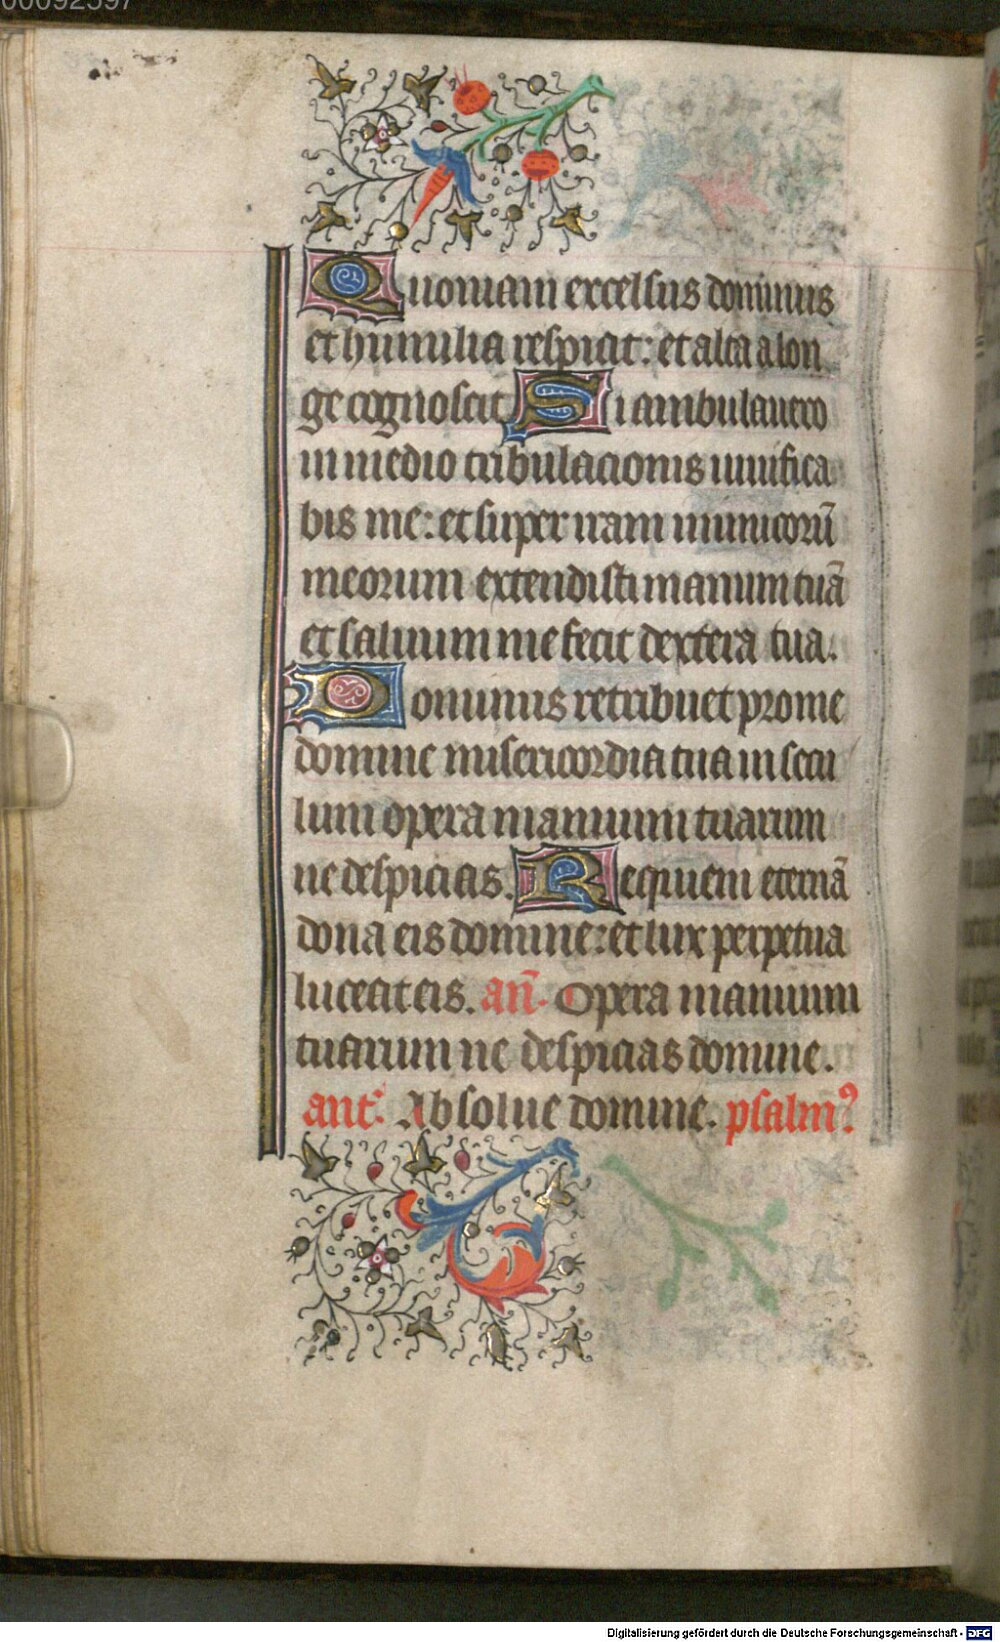 00092597
Quoniam excelsus dominus
et humilia respicit: et alta a lon
ge cognoscit Si ambulauero
in medio tribulacionis uiuifica
bis me: et super iram inimicorū
meorum extendisti manum tuā
et saluum me fecit dextera tua.
Dominus retribuet pro me
domine misericordia tua in secu
lum opera manuum tuarum
ne despicias. Requiem eternā
dona eis domine: et lux perpetua
luceat eis. an̄. Opera manuum
tuarum ne despicias domine.
ant̾. Absolue domine. psalmꝰ
Digitalisierung gefördert durch die Deutsche Forschungsgemeinschaft - DFG